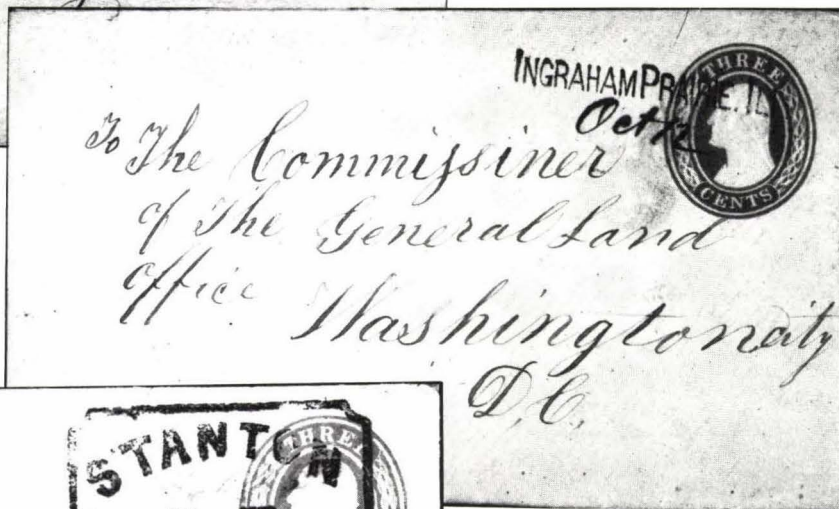 INGRAHAM PRAIRIE. ILL
THREE
Oct 12
CENTS
To The Commissiner
of The General Land
office Washington city
D.C.
STANTON
THREE